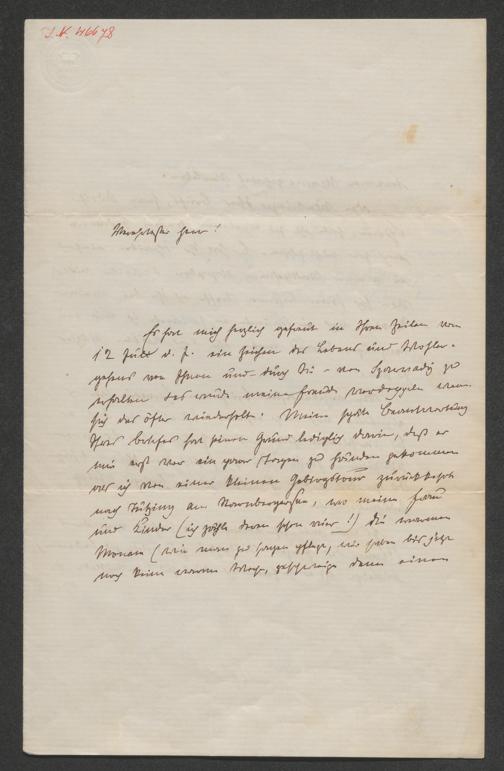 I.N. 46678
Verehrtester Herr!
Es hat mich herzlich gefreut in Ihren Zeilen vom
12 Juli d. J. ein Zeichen des Lebens und Wohler-
gehens von Ihnen und durch Sie von Szarvady zu
erhalten das würde meine Freude verdoppeln wenn
sich das öfter wiederholte. Meine späte Beantwortung
Ihres Briefes hat seinen Grund lediglich darin, daß er
mir erst vor ein paar Tagen zu Händen gekommen
als ich von einer kleinen Gebirgstour zurückkehrte
nach Tutzing am Starnbergersee, wo meine Frau
und Kinder (ich zähle deren schon vier!) die warmen
Monate (wie man zu sagen pflegt, wir haben bis jetzt
noch keine warme Woche, geschweige denn einen